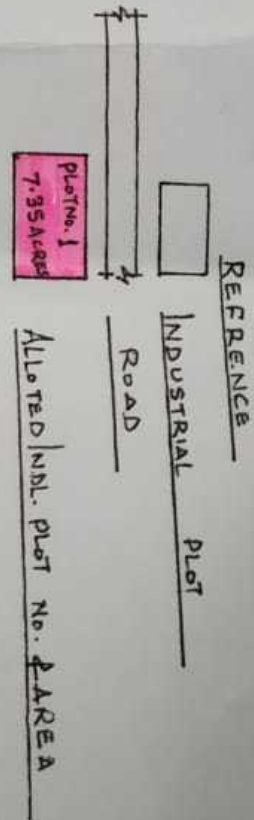 REFRENCE
INDUSTRIAL PLOT
ROAD
PLOT No. 1
7.35 ACRES
ALLOTED INDL. PLOT No. & AREA